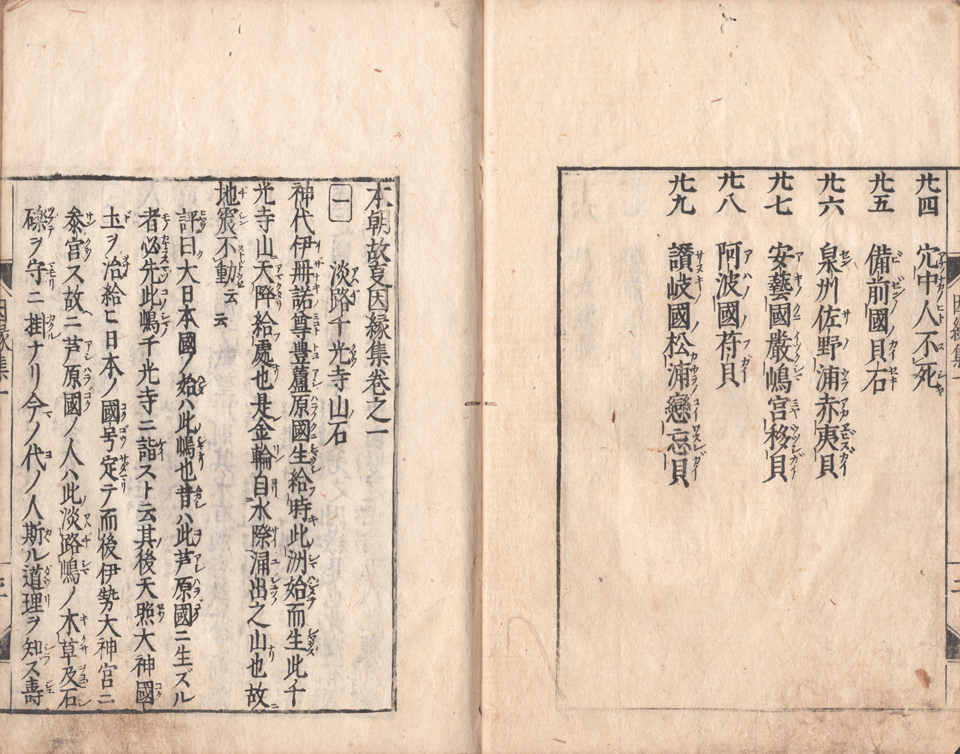 廿四 宂中人不死
廿五 備前國貝石
廿六 泉州佐野浦赤夷貝
廿七 安藝國嚴嶋宮移貝
廿八 阿波國苻貝
廿九 讃岐國松浦戀忘貝
本朝故亊因縁集卷之一
一 淡路千光寺山石
神代伊弉諾尊豊蘆原國生給時此洲始而生此千
光寺山天降給處也是金輪自水際涌出之山也故
地震不動云云
評曰大日本國ノ始ハ此嶋也昔ハ此芦原國ニ生ズル
者必先此嶋千光寺ニ詣スト云其後天照大神國
土ヲ治給ヒ日本ノ國号定テ而後伊勢大神宮ニ
叅宮ス故ニ芦原國ノ人ハ此淡路嶋ノ木草及石
礫ヲ守ニ掛ナリ今ノ代ノ人斯ル道理ヲ知ス壽
因縁集一